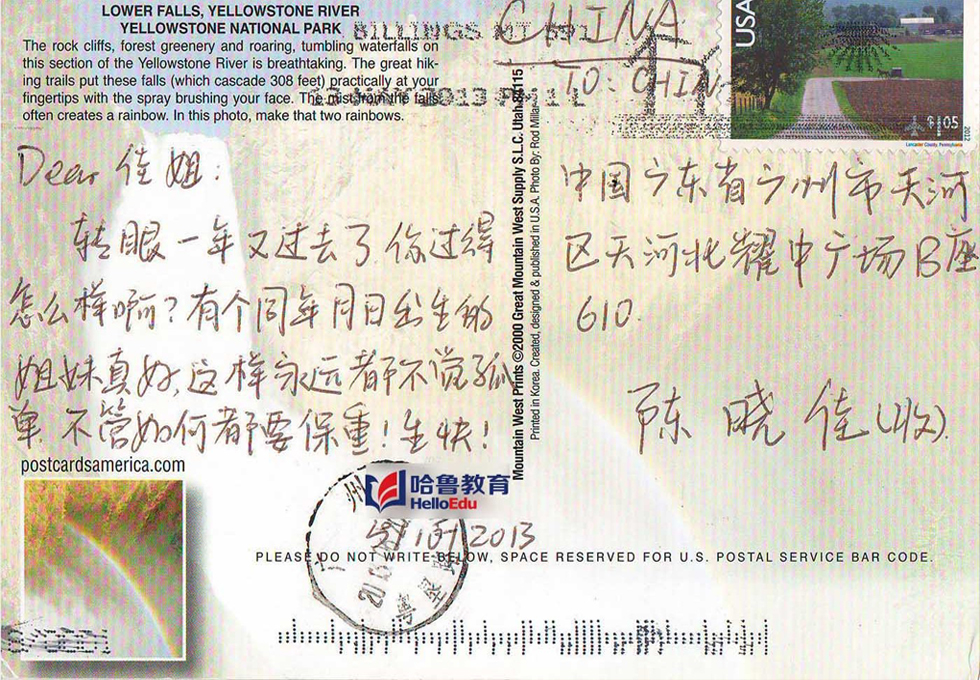 LOWER FALLS, YELLOWSTONE RIVER
YELLOWSTONE NATIONAL PARK
The rock cliffs, forest greenery and roaring, tumbling waterfalls on
this section of the Yellowstone River is breathtaking. The great hik-
ing trails put these falls (which cascade 308 feet) practically at your
fingertips with the spray brushing your face. The mist from the falls
often creates a rainbow. In this photo, make that two rainbows.
BILLINGS MT 591
2013 PM 1 L
CHINA
TO: CHINA
USA
$1.05
2012
Lancaster County, Pennsylvania
Dear 佳姐:
转眼一年又过去了,你过得
怎么样啊?有个同年月日出生的
姐妹真好,这样永远都不觉孤
单,不管如何都要保重!生快!
postcardsamerica.com
Mountain West Prints ©2000 Great Mountain West Supply S.L.C. Utah 84115
Printed in Korea. Created, designed & published in U.S.A. Photo By: Rod Millar
中国广东省广州市天河
区天河北耀中广场B座
610.
陈晓佳(收).
哈鲁教育
HelloEdu
2013
PLEASE DO NOT WRITE BELOW, SPACE RESERVED FOR U.S. POSTAL SERVICE BAR CODE.
州
广